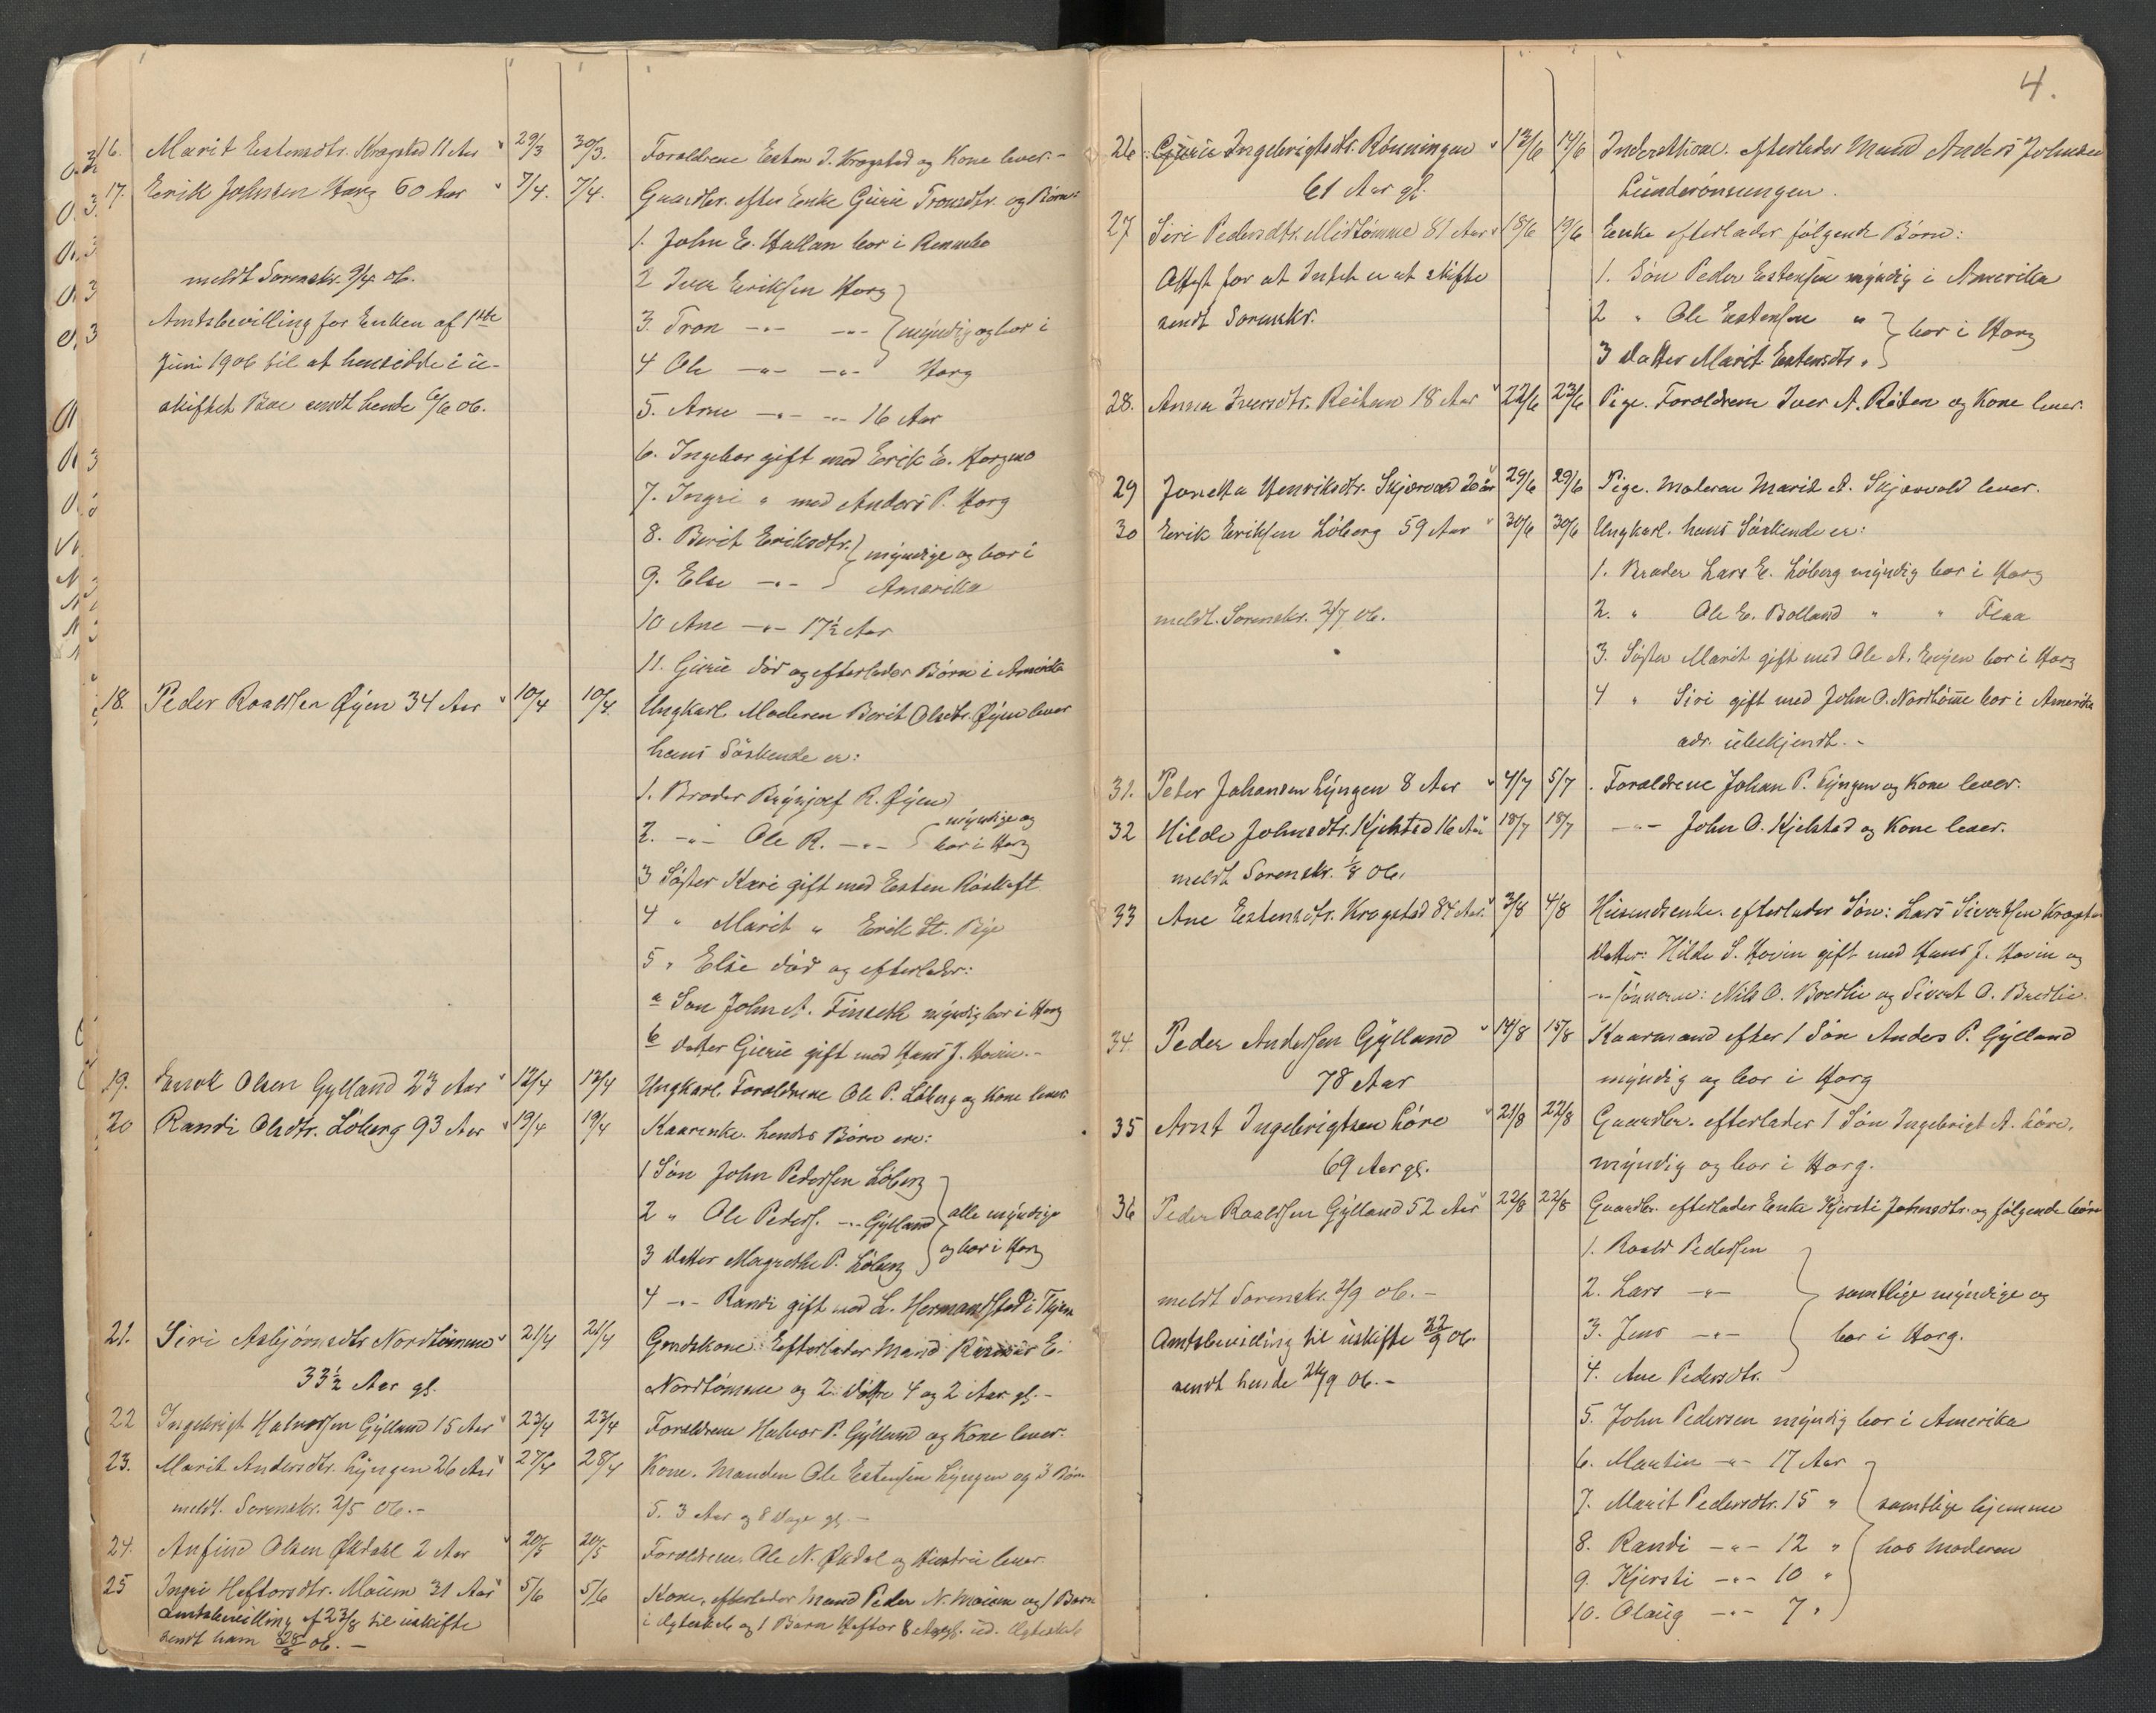 16. Marit Estensdtr. Krogstad 11 Aar 29/3 30/3. Forældrene Esten J. Krogstad og Kone lever.-
17. Erik Johnsen Horg 60 Aar 7/4. 7/4. Gaardbr. efter Enke Gurie Tronsdtr. og Børn:
1. John E. Hallan bor i Rennebo
meldt Sorenskr. 9/4 06.
2 Iver Eriksen Horg
Amtsbevilling for Enken af 1ste
3. Tron -"- -"- myndig og bor i
Juni 1906 til at hensidde i u-
4 Ole -"- -"- Horg
skiftet Boe sendt hende 6/6 06.
5. Arne -"- -"- 16 Aar
6. Ingebor gift med Erik E. Horgmo
7. Ingri " med Anders P. Horg
8. Berit Eriksdtr. myndige og bor i
9. Else -"- Amerika
10 Ane -"- 17½ Aar
11. Gurie død og efterlader Børn i Amerika
18. Peder Roaldsen Øyen 34 Aar 10/4 10/4. Ungkarl. Moderen Berit Olsdtr. Øyen lever
hans Søskende er:
1. Broder Brynjolf R. Øyen
2. -"- Ole R. -"- myndige og bor i Horg
3 Søster Kari gift med Esten Røskaft
4 " Marit " Erik St. Bye
5 " Else død og efterlader:
a Søn John A. Finseth myndig bor i Horg
b Datter Gurie gift med Hans J. Hovin.-
19. Enok Olsen Gylland 23 Aar 12/4 12/4 Ungkarl. Forældrene Ole P. Løberg og Kone lever
20 Randi Olsdtr. Løberg 93 Aar 19/4 19/4 Kaarenke. hendes Børn ere:
1 Søn John Pedersen Løberg
2 " Ole Peders. -"- Gylland alle myndige
3 Datter Magrethe P. Løberg og bor i Horg
4 -"- Randi gift med L. Hermandstad i
21. Siri Asbjørnsdtr Nordtømme 21/4 21/4 Grdskone. Efterlader Mand Rasmus E.
33½ Aar gl. Nordtømme og 2 Døtre 4 og 2 Aar gl.-
22 Ingebrigt Halvorsen Gylland 15 Aar 23/4 23/4 Forældrene Halvor P. Gylland og Kone lever.
23. Marit Andersdtr. Lyngen 26 Aar 27/4 28/4 Kone. Manden Ole Estensen Lyngen og 3 Børn
meldt. Sorenskr. 2/5 06.- 5. 3 Aar og 8 Dage gl.-
24. Anfind Olsen Ødahl 2 Aar 20/5 20/5 Forældrene Ole N. Ødal og Hustru lever
25 Ingri Heftorsdtr. Moum 31 Aar 5/6 5/6 Kone, efterlader Mand Peder N. Moum og 1 Barn
Amtsbevilling af 23/8 til uskifte i Ægteskab og 1 Barn Heftor 8 Aar gl. ud. Ægteskab
sendt ham 06.-
4.
26. Gurie Ingebrigtsdtr. Rønningen 12/6 14/6 Inderstkone. efterlader Mand Anders Johnsen
61 Aar gl. Lunderønningen.
27 Siri Pedersdtr. Midtømme 81 Aar 18/6 19/6 Enke efterlader følgende Børn:
Attest for at Intet er at skifte 1. Søn Peder Estensen myndig i Amerika
sendt Sorenskr. 2 " Ole Estensen " bor i Horg
3 Datter Marit Estensdtr. "
28. Anna Iversdtr. Reitan 18 Aar 22/6 23/6 Pige. Forældrene Iver A. Reitan og Kone lever.
29 Jonetta Henriksdtr. Skjærvold 20 år 29/6 29/6 Pige. Moderen Marit A. Skjærvold lever.
30 Erik Eriksen Løberg 59 Aar 30/6 30/6 Ungkarl. hans Søskende er:
1. Broder Lars E. Løberg myndig bor i Horg
meldt. Sorenskr. 2/7 06. 2. " Ole E. Bolland " " Flaa
3. Søster Marit gift med Ole A. Enyen bor i Horg
4 " Siri gift med John O. Nordtømme bor i Amerika
adr. ubekjendt.-
31. Peter Johansen Lyngen 8 Aar 4/7 5/7 Forældrene Johan P. Lyngen og Kone lever.
32 Hilde Johnsdtr. Kjelstad 16 Aar 18/7 18/7 -"- John O. Kjelstad og Kone lever.
meldt Sorenskr. 1/8 06.
33 Ane Estensdtr. Krogstad 84 Aar 3/8 4/8 Husmdsenke. efterlader Søn: Lars Sivertsen Krogstad
Datter: Hilde S. Hovin gift med Hans J. Hovin og
-"- Sønnerne: Nils O. Bredlie og Sivert O. Bredlie.
34. Peder Andersen Gylland 14/8 15/8 Kaarmand efter 1 Søn Anders P. Gylland
78 Aar myndig og bor i Horg
35 Arnt Ingebrigtsen Løre 21/8 22/8 Gaardbr. efterlader 1 Søn Ingebrigt A. Løre.
69 Aar gl. myndig og bor i Horg.
36 Peder Roaldsen Gylland 52 Aar 22/8 22/8 Gaardbr. efterlader Enke Kjersti Johnsdtr. og følgende børn
1. Roald Pedersen
meldt Sorenskr. 2/9 06.- 2. Lars -"- samtlige myndige og
Amtsbevilling til uskifte 22/9 06. 3. Jens -"- bor i Horg.
sendt hende 24/9 06.- 4. Ane Pedersdtr.
5. John Pedersen myndig bor i Amerika
6. Martin -"- 17 Aar
7. Marit Pedersdtr. 15 " samtlige hjemme
8. Randi -"- 12 " hos Moderen
9. Kjersti -"- 10 "
10. Olaug -"- 7 "